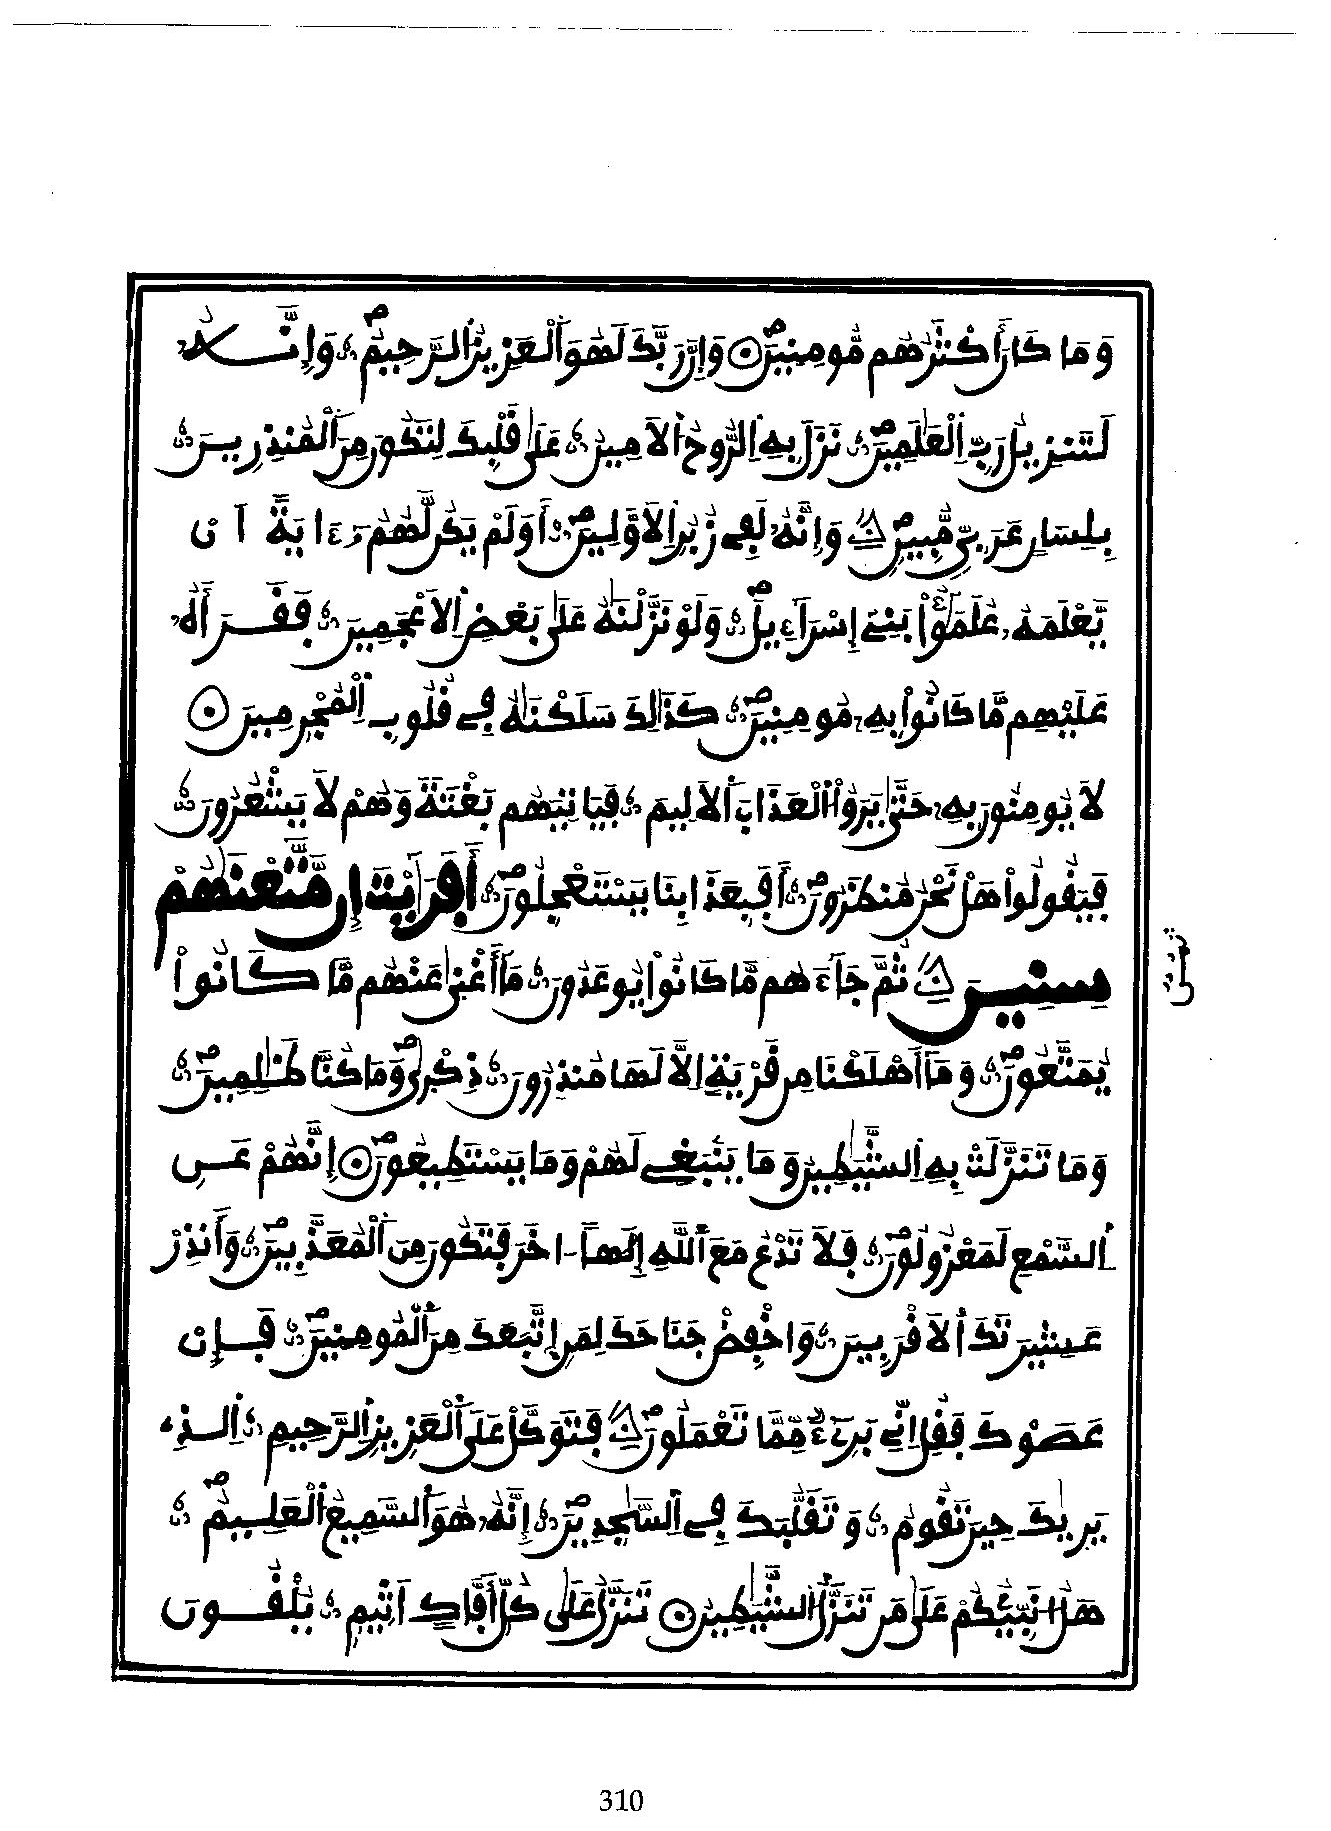 وَمَا كَانَ أَكْثَرُهُم مُّومِنِينَ وَإِنَّ رَبَّكَ لَهُوَ اَلْعَزِيزُ اُلرَّحِيمُ وَإِنَّهُ
لَتَنزِيلُ رَبِّ اِلْعَٰلَمِينَ نَزَلَ بِهِ اِلرُّوحُ اُلَامِينُ عَلَىٰ قَلْبِكَ لِتَكُونَ مِنَ اَلْمُنذِرِينَ
بِلِسَانٍ عَرَبِيّٖ مُّبِينٍ وَإِنَّهُۥ لَفِے زُبُرِ اِلَاوَّلِينَ أَوَلَمْ يَكُن لَّهُمُۥٓ ءَايَةً اَنْ
يَّعْلَمَهُۥ عُلَمَٰٓؤُاْ بَنِےٓ إِسْرَآءِيلَ وَلَوْ نَزَّلْنَٰهُ عَلَىٰ بَعْضِ اِلَاعْجَمِينَ فَقَرَأَهُۥ
عَلَيْهِم مَّا كَانُواْ بِهِۦ مُومِنِينَ كَذَٰلِكَ سَلَكْنَٰهُ فِے قُلُوبِ اِلْمُجْرِمِينَ
لَا يُومِنُونَ بِهِۦ حَتَّىٰ يَرَوُاْ اُلْعَذَابَ اَلَالِيمَ فَيَاتِيَهُم بَغْتَةً وَهُمْ لَا يَشْعُرُونَ
فَيَقُولُواْ هَلْ نَحْنُ مُنظَرُونَ أَفَبِعَذَابِنَا يَسْتَعْجِلُونَ أَفَرَٰٓيْتَ إِن مَّتَّعْنَٰهُمْ
سِنِينَ ثُمَّ جَآءَهُم مَّا كَانُواْ يُوعَدُونَ مَآ أَغْنَىٰ عَنْهُم مَّا كَانُواْ
ثمن
يُمَتَّعُونَ وَمَآ أَهْلَكْنَا مِن قَرْيَةٍ اِلَّا لَهَا مُنذِرُونَ ذِكْرَىٰ وَمَا كُنَّا ظَٰلِمِينَ
وَمَا تَنَزَّلَتْ بِهِ اِلشَّيَٰطِينُ وَمَا يَنۢبَغِے لَهُمْ وَمَا يَسْتَطِيعُونَ إِنَّهُمْ عَنِ
اِلسَّمْعِ لَمَعْزُولُونَ فَلَا تَدْعُ مَعَ اَللَّهِ إِلَٰهاً اٰخَرَ فَتَكُونَ مِنَ اَلْمُعَذَّبِينَ وَأَنذِرْ
عَشِيرَتَكَ اَلَاقْرَبِينَ وَاخْفِضْ جَنَاحَكَ لِمَنِ اِتَّبَعَكَ مِنَ اَلْمُومِنِينَ فَإِنْ
عَصَوْكَ فَقُلِ اِنِّے بَرِےٓءٌ مِّمَّا تَعْمَلُونَ فَتَوَكَّلْ عَلَى اَلْعَزِيزِ اِلرَّحِيمِ اِلذِے
يَرَىٰكَ حِينَ تَقُومُ وَتَقَلُّبَكَ فِے اِلسَّٰجِدِينَ إِنَّهُۥ هُوَ اَلسَّمِيعُ اُلْعَلِيمُ
هَلُ انَبِّئُكُمْ عَلَىٰ مَن تَنَزَّلُ اُلشَّيَٰطِينُ تَنَزَّلُ عَلَىٰ كُلِّ أَفَّاكٍ اَثِيمٍ يُلْقُونَ
310